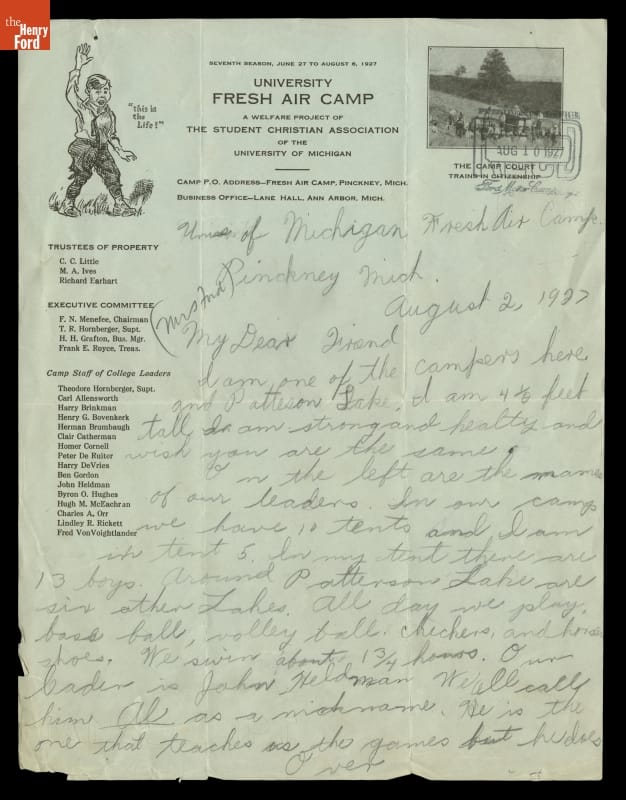 the
Henry
Ford
"this is
the
Life!"
SEVENTH SEASON, JUNE 27 TO AUGUST 6, 1927
UNIVERSITY
FRESH AIR CAMP
A WELFARE PROJECT OF
THE STUDENT CHRISTIAN ASSOCIATION
OF THE
UNIVERSITY OF MICHIGAN
CAMP P.O. ADDRESS—FRESH AIR CAMP, PINCKNEY, MICH.
BUSINESS OFFICE—LANE HALL, ANN ARBOR, MICH.
AUG 10 1927
THE CAMP COURT
TRAINS IN CITIZENSHIP
TRUSTEES OF PROPERTY
C. C. Little
M. A. Ives
Richard Earhart
EXECUTIVE COMMITTEE
F. N. Menefee, Chairman
T. R. Hornberger, Supt.
H. H. Grafton, Bus. Mgr.
Frank E. Royce, Treas.
Camp Staff of College Leaders
Theodore Hornberger, Supt.
Carl Allensworth
Harry Brinkman
Henry G. Bovenkerk
Herman Brumbaugh
Clair Catherman
Homer Cornell
Peter De Ruiter
Harry DeVries
Ben Gordon
John Heldman
Byron O. Hughes
Hugh M. McEachran
Charles A. Orr
Lindley R. Rickett
Fred VonVoightlander
of Michigan Fresh Air Camp.
Pinckney Mich.
August 2, 1927
My Dear Friend
I am one of the campers here
and Patteson Lake. I am 4 ½ feet
tall. I am strong and healty and
wish you are the same.
On the left are the names
of our leaders. In our camp
we have 10 tents and I am
in tent 5. In my tent there are
13 boys. Around Patterson Lake are
six other Lakes. All day we play,
base ball, volley ball. chickers, and horse
shoes. We swim about 1 3/4 hours. Our
leader is John Heldman We all call
him Al as a nickname. He is the
one that teaches us the games but he does
Over